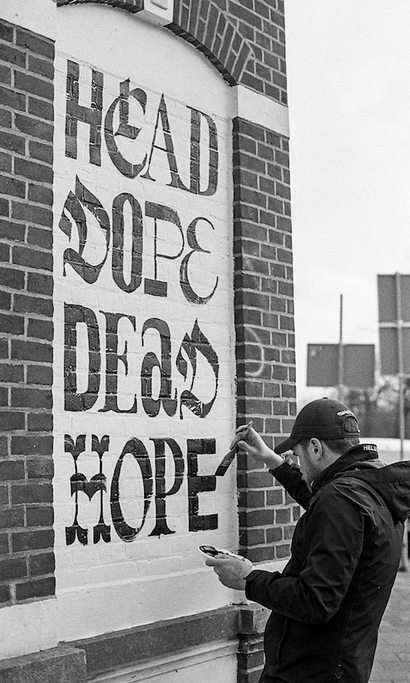 HEAD
DOPE
DEAD
HOPE